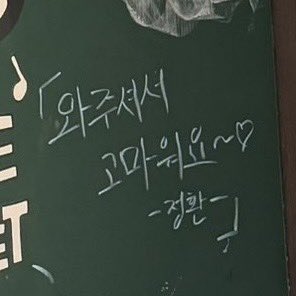 「와주셔서
고마워요~♡
-정환-」
ET